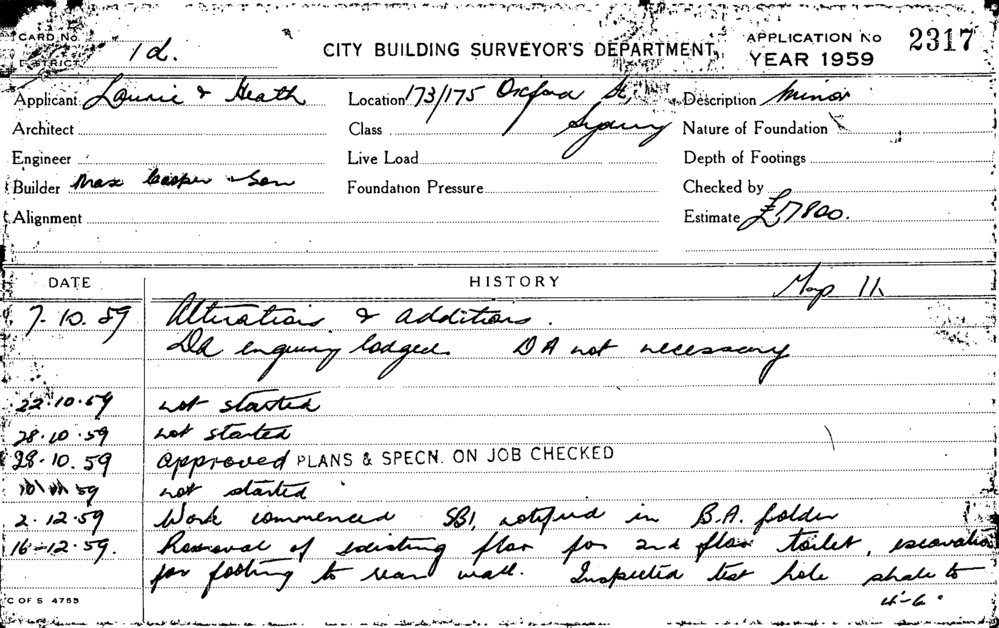 CARD No.
DISTRICT 1d.
CITY BUILDING SURVEYOR'S DEPARTMENT,
APPLICATION No 2317
YEAR 1959
Applicant Lourie & Heath
Location 173/175 Oxford St,
Sydney
Description Minor
Architect
Class
Nature of Foundation
Engineer
Live Load
Depth of Footings
Builder Max Cooper & Son
Foundation Pressure
Checked by
Alignment
Estimate £17800.
DATE
HISTORY
Map 11
7.10.59 Alterations & additions.
DA enquiry lodged. DA not necessary
22.10.59 not started
28.10.59 not started
28.10.59 approved PLANS & SPECN. ON JOB CHECKED
59 not started
2.12.59 Work commenced SB1, notified in B.A. folder
16-12-59. Removal of existing floor for 2nd floor toilet, excavation
for footing to rear wall. Inspected test hole shale to
4'-6"
C OF S 4755